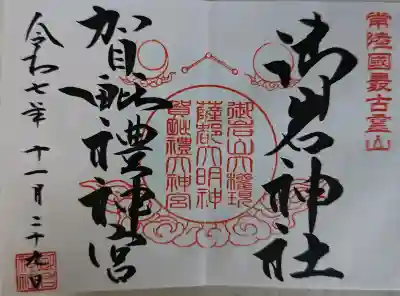 常陸國最古霊山
御岩神社
御岩山大權現
薩都大明神
賀毗禮大神宮
賀毗禮神宮
令和七年 十一月 二十九日